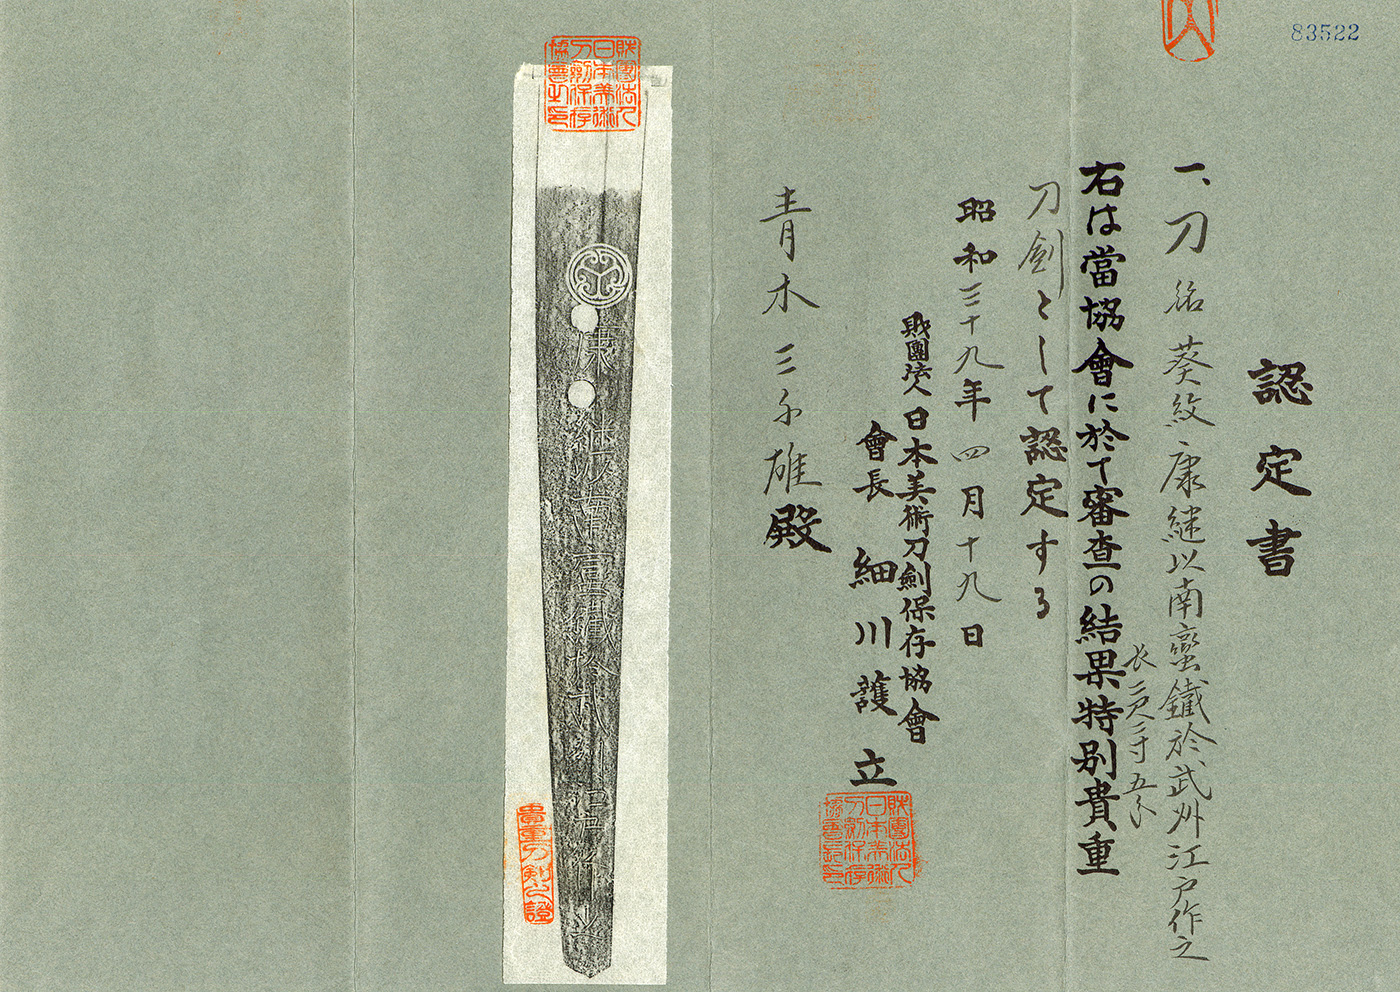 83522
認定書
一、刀 銘 葵紋 康継以南蛮鐵於武州江戸作之
長 二尺二寸五分
右は當協會に於て審査の結果特別貴重
刀剣として認定する
昭和三十九年四月十九日
財團法人日本美術刀劍保存協會
會長 細川護立
青木三雄殿
財團法人日本美術刀劍保存協會之印
財團法人日本美術刀劍保存協會長印
康継以南蛮鐵於武州江戸作之
貴重刀剣之證